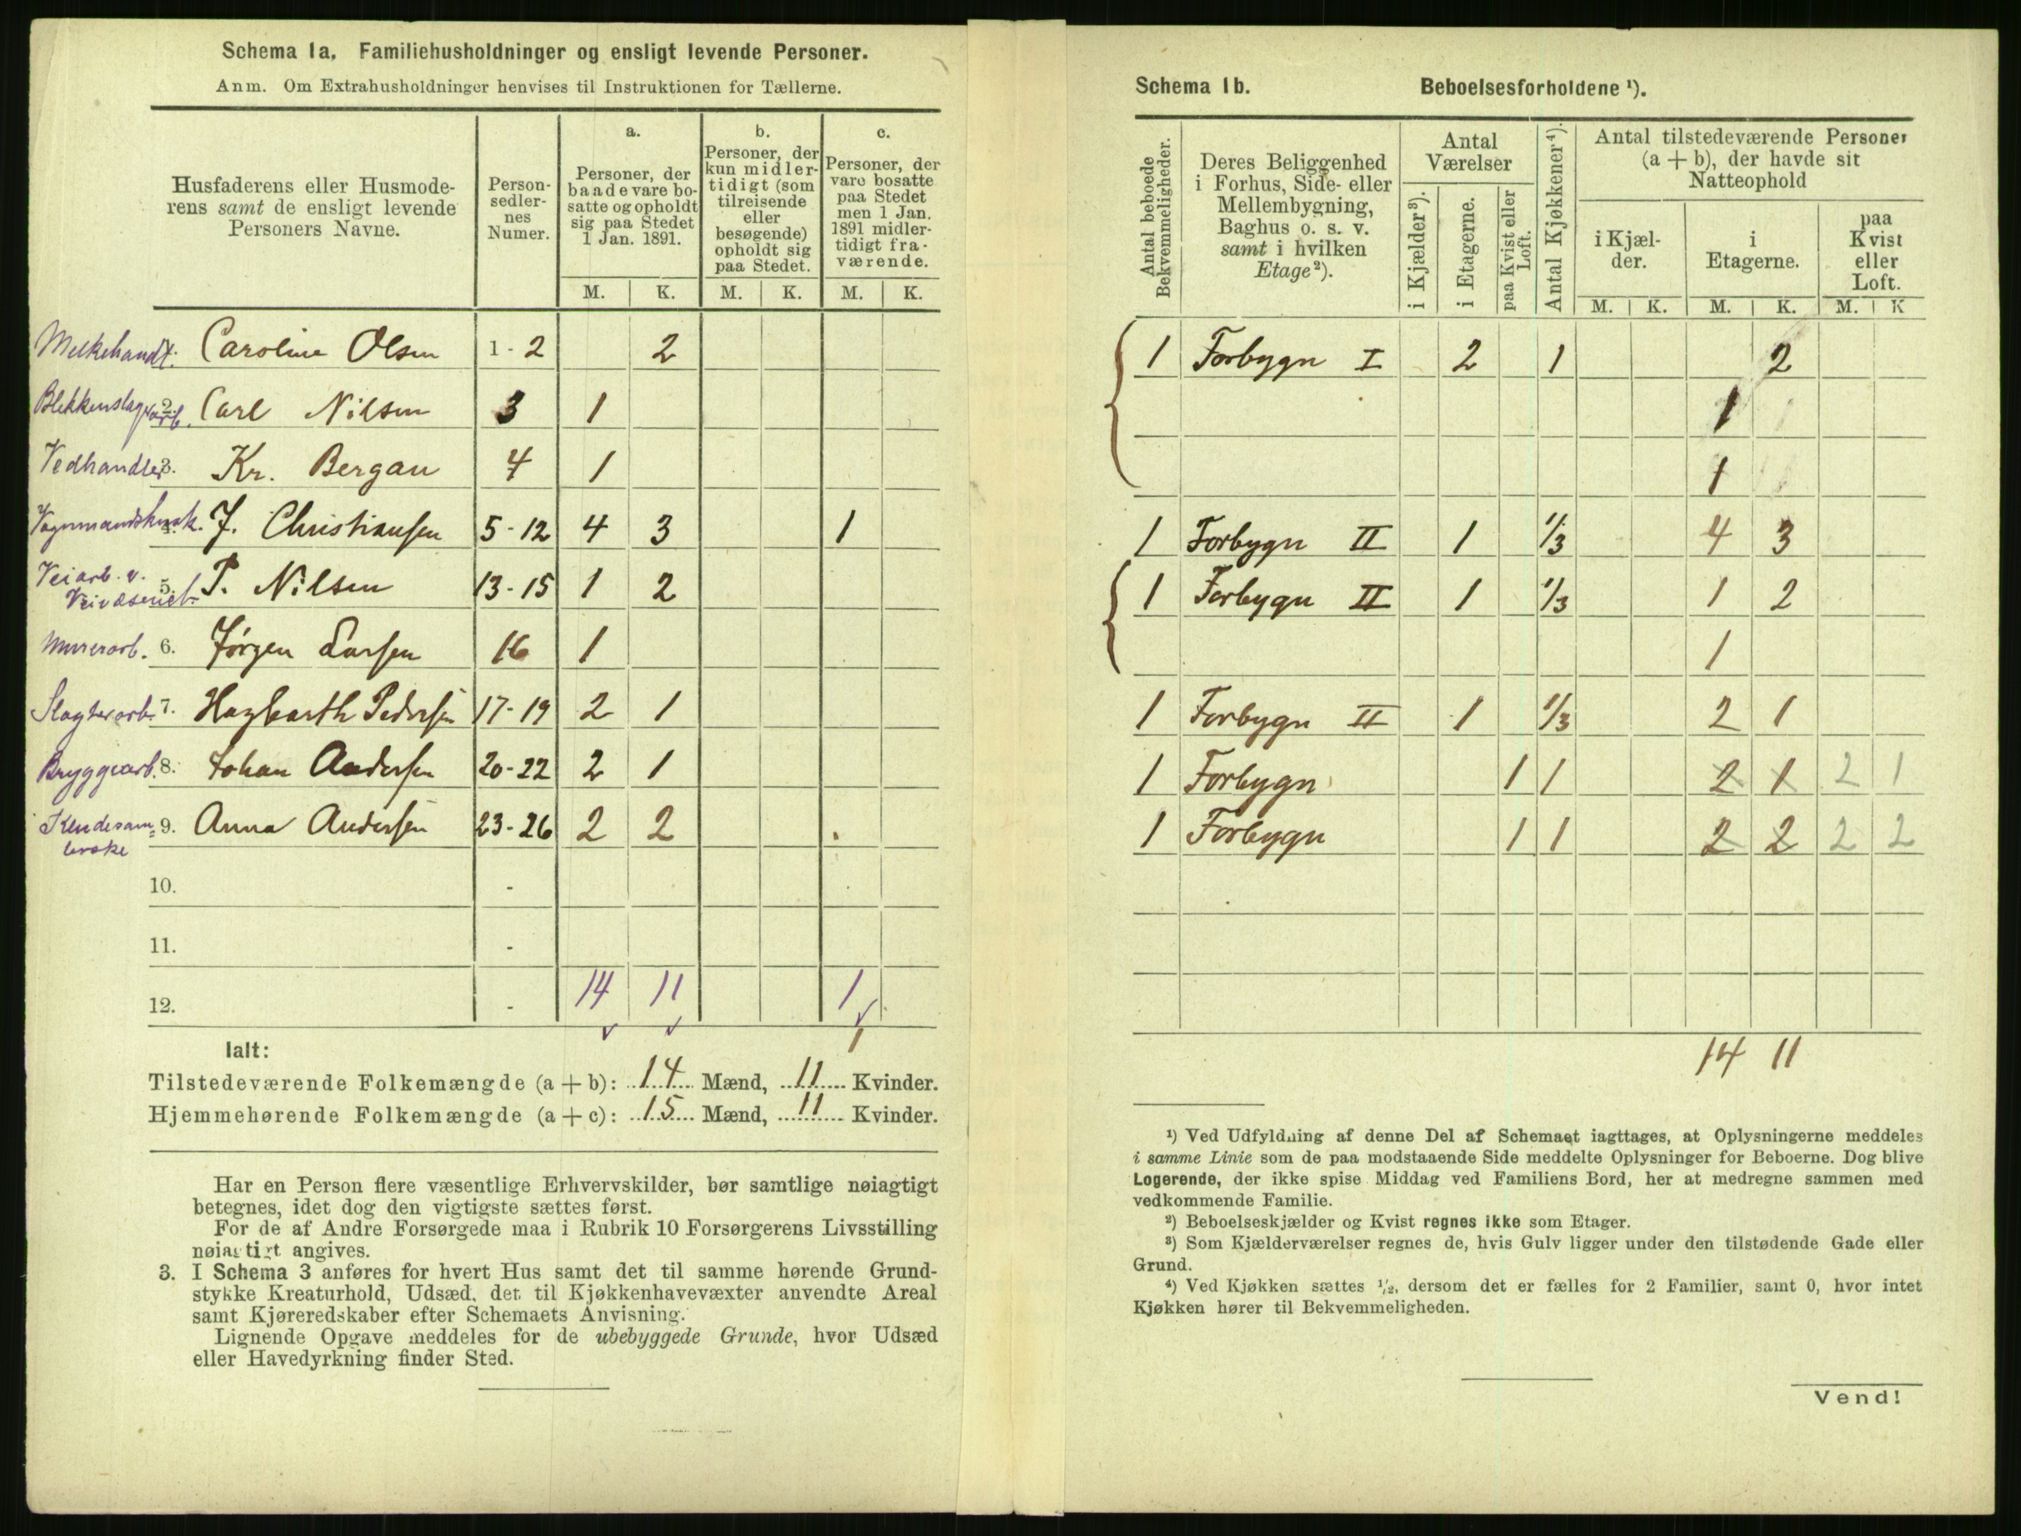 Schema 1a. Familiehusholdninger og ensligt levende Personer.
Anm. Om Extrahusholdninger henvises til Instruktionen for Tællerne.
Husfaderens eller Husmode-
rens samt de ensligt levende
Personers Navne.
Person-
sedler-
nes
Numer.
a.
Personer, der
baade vare bo-
satte og opholdt
sig paa Stedet
1 Jan. 1891.
b.
Personer, der
kun midler-
tidigt (som
tilreisende
eller
besøgende)
opholdt sig
paa Stedet.
c.
Personer, der
vare bosatte
paa Stedet
men 1 Jan.
1891 midler-
tidigt fra-
værende.
M. K. M. K. M. K.
Melkehandl. Caroline Olsen 1-2 2
Blekkenslagerarb. 2. Carl Nilsen 3 1
Vedhandler 3. Kr. Bergan 4 1
4. J. Christiansen 5-12 4 3 1
Veiarb. v.
Veivæsenet 5. P. Nilsen 13-15 1 2
Murerarb. 6. Jørgen Larsen 16 1
Slagterarb. 7. Hagbarth Pedersen 17-19 2 1
Bryggearb. 8. Johan Andersen 20-22 2 1
9. Anna Andersen 23-26 2 2
10. -
11. -
12. - 14 11 1
1
Ialt:
Tilstedeværende Folkemængde (a + b): 14 Mænd, 11 Kvinder.
Hjemmehørende Folkemængde (a + c): 15 Mænd, 11 Kvinder.
Har en Person flere væsentlige Erhvervskilder, bør samtlige nøiagtigt
betegnes, idet dog den vigtigste sættes først.
For de af Andre Forsørgede maa i Rubrik 10 Forsørgerens Livsstilling
nøiagtigt angives.
3. I Schema 3 anføres for hvert Hus samt det til samme hørende Grund-
stykke Kreaturhold, Udsæd, det til Kjøkkenhavevæxter anvendte Areal
samt Kjøreredskaber efter Schemaets Anvisning.
Lignende Opgave meddeles for de ubebyggede Grunde, hvor Udsæd
eller Havedyrkning finder Sted.
Schema 1b. Beboelsesforholdene ¹).
Antal beboede
Bekvemmeligheder.
Deres Beliggenhed
i Forhus, Side- eller
Mellembygning,
Baghus o. s. v.
samt i hvilken
Etage ²).
Antal
Værelser
i Kjælder ³).
i Etagerne.
paa Kvist eller
Loft.
Antal Kjøkkener ⁴).
Antal tilstedeværende Personer
(a + b), der havde sit
Natteophold
i Kjæl-
der.
i
Etagerne.
paa
Kvist
eller
Loft.
M. K. M. K. M. K
1 Forbygn I 2 1 2
1
1
1 Forbygn II 1 1/3 4 3
1 Forbygn II 1 1/3 1 2
1
1 Forbygn II 1 1/3 2 1
1 Forbygn 1 1 2 1 2 1
1 Forbygn 1 1 2 2 2 2
14 11
¹) Ved Udfyldning af denne Del af Schemaet iagttages, at Oplysningerne meddeles
i samme Linie som de paa modstaaende Side meddelte Oplysninger for Beboerne. Dog blive
Logerende, der ikke spise Middag ved Familiens Bord, her at medregne sammen med
vedkommende Familie.
²) Beboelseskjælder og Kvist regnes ikke som Etager.
³) Som Kjælderværelser regnes de, hvis Gulv ligger under den tilstødende Gade eller
Grund.
⁴) Ved Kjøkken sættes ¹/₂, dersom det er fælles for 2 Familier, samt 0, hvor intet
Kjøkken hører til Bekvemmeligheden.
Vend!